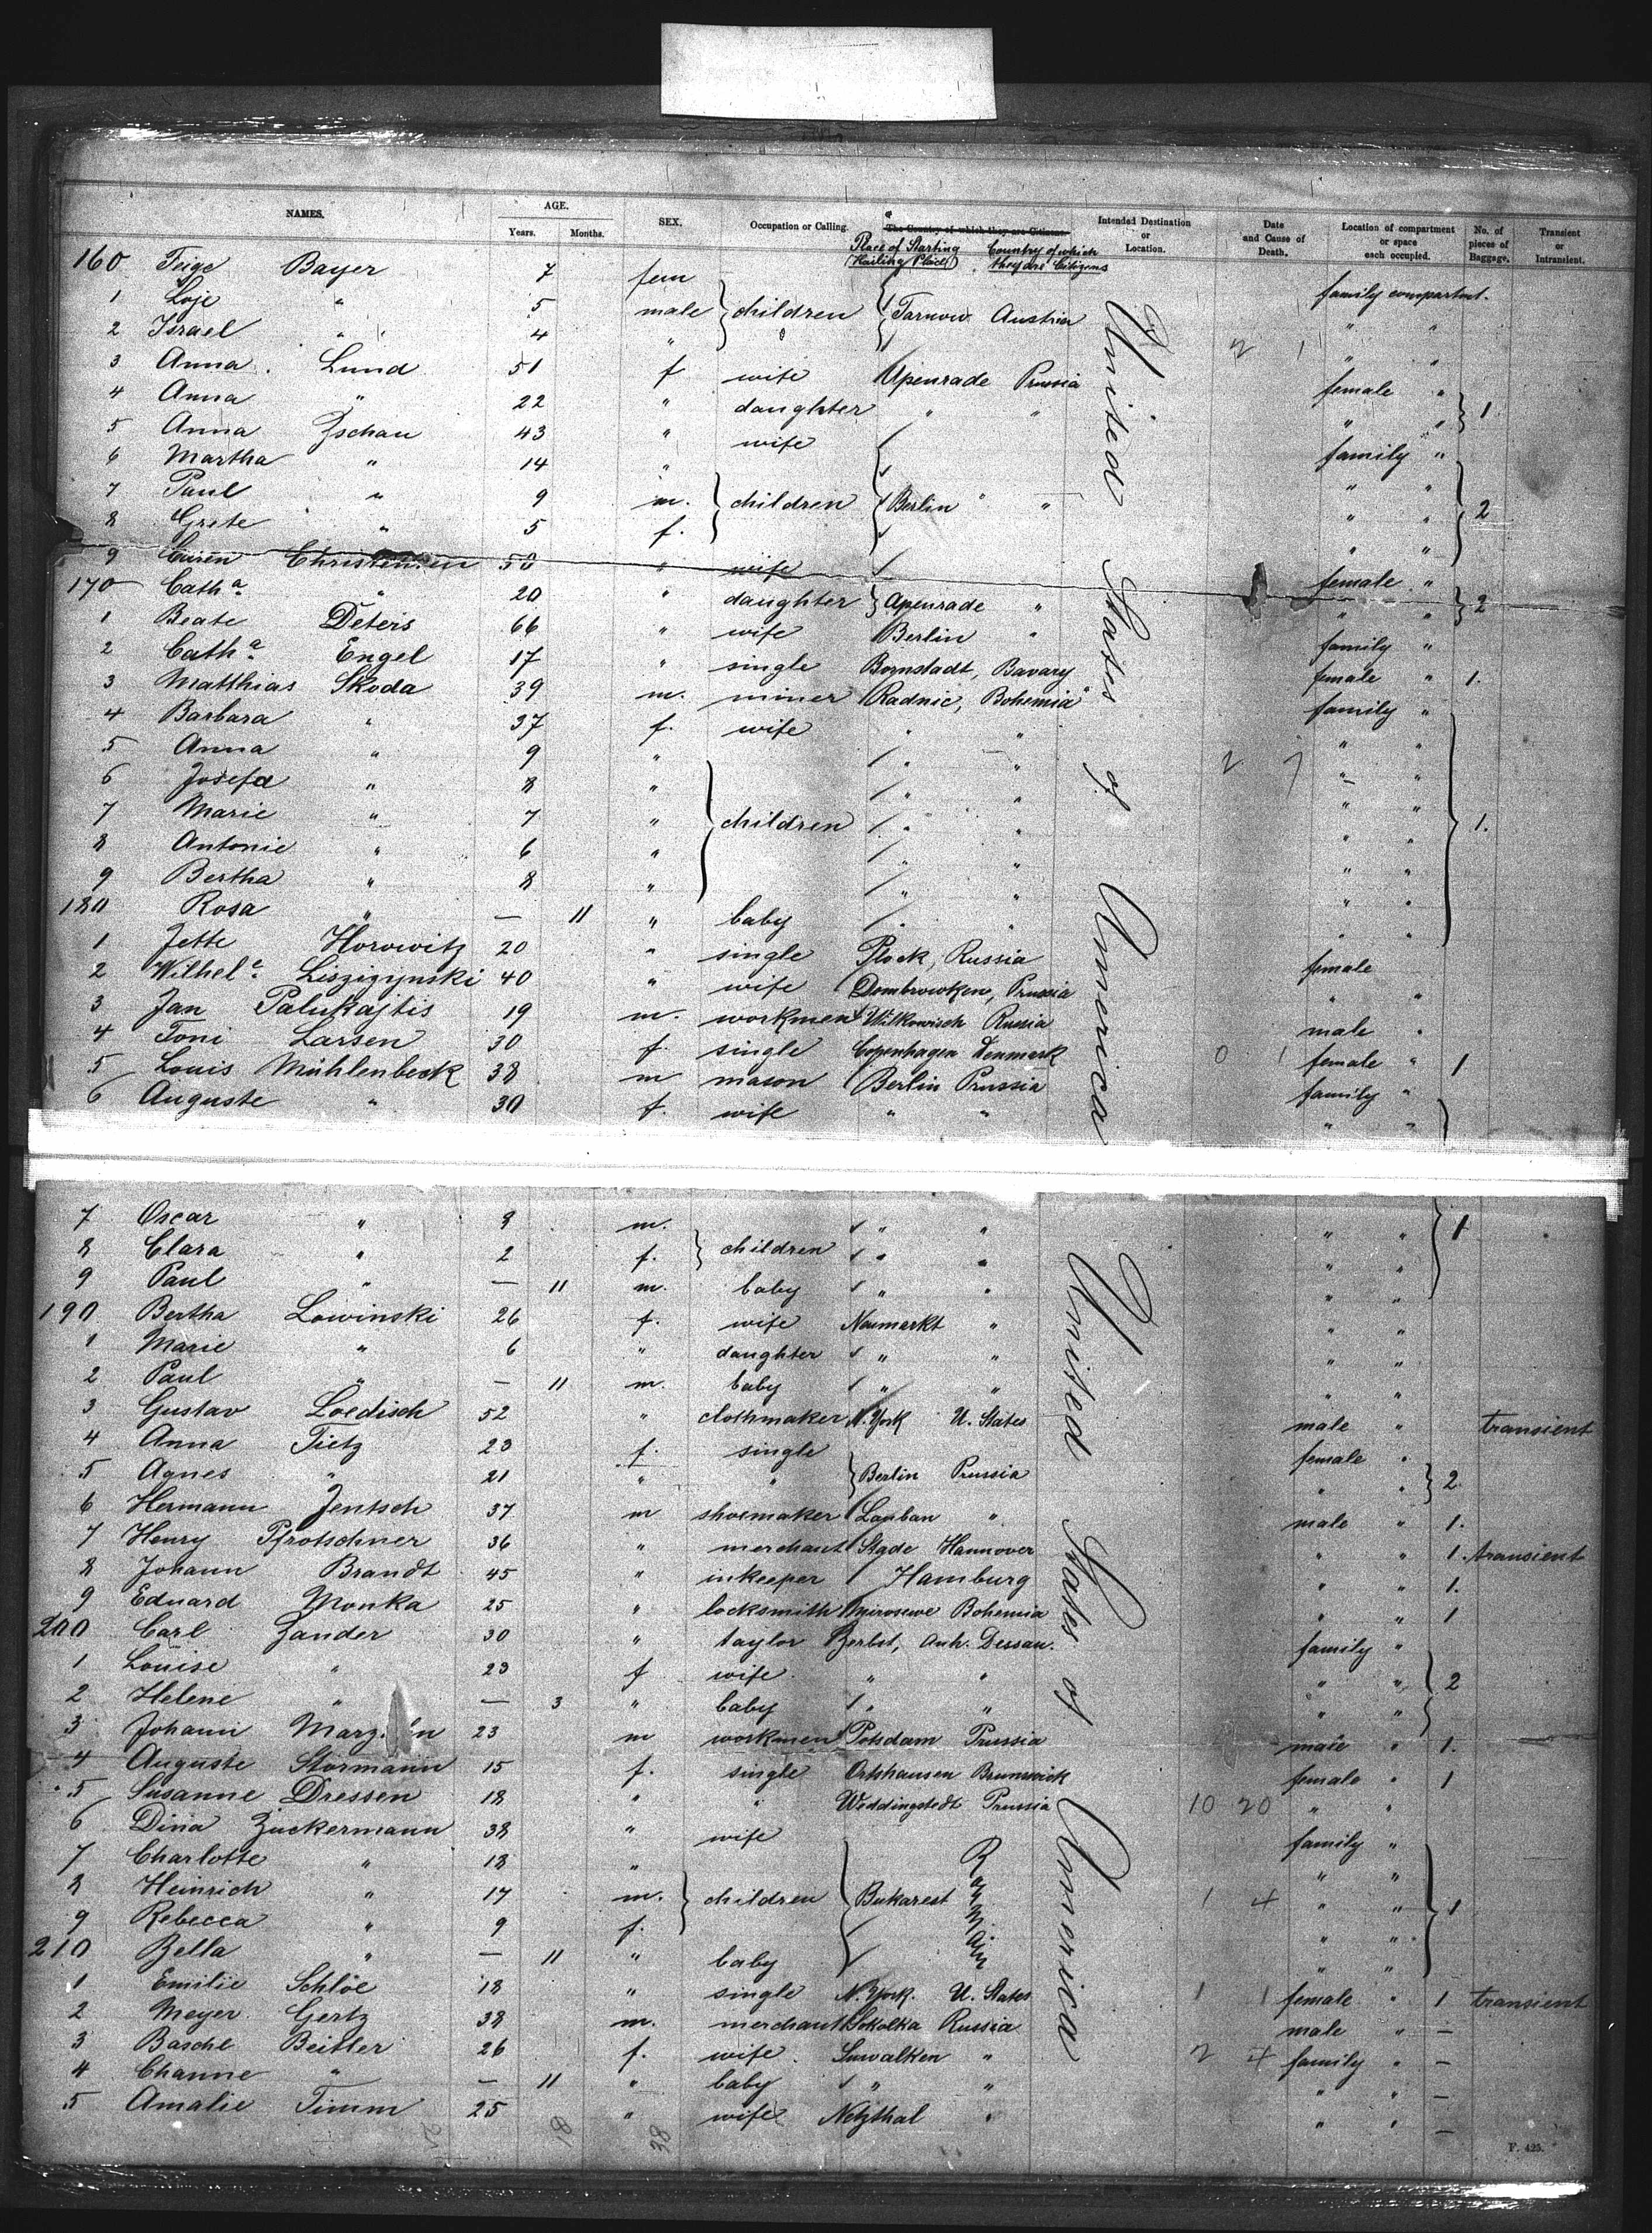 NAMES. AGE. Years. Months. SEX. Occupation or Calling. The Country of which they are Citizens. Intended Destination or Location. Date and Cause of Death. Location of compartment or space each occupied. No. of pieces of Baggage. Transient or Intransient.
Place of Starting (Hailing Place) Country of which they are Citizens
160 Feige Bayer 7 fem family compartmt.
1 Loje " 5 male } children { Tarnow Austria " "
2 Israel " 4 " 2 1 " "
3 Anna Lund 51 f wife Apenrade Prussia female "
4 Anna " 22 " daughter " " " " } 1
5 Anna Zschau 43 " wife family "
6 Martha " 14 " " "
7 Paul " 9 m. } children { Berlin " " " " 2
8 Grete " 5 f. " "
9 Caren Christensen 50 " wife female "
170 Cath.a " 20 " daughter } Apenrade " " " } 2
1 Beate Deters 66 " wife Berlin " family "
2 Cath.a Engel 17 " single Bornstadt, Bavary female " 1.
3 Matthias Skoda 39 m. miner Radnic, Bohemia family "
4 Barbara " 37 f. wife " " " "
5 Anna " 9 " " " 2 7 " "
6 Josefa " 8 " " " " "
7 Marie " 7 " } children " " " " 1.
8 Antonie " 6 " " " " "
9 Bertha " 8 " " " " "
180 Rosa " — 11 " baby " " " "
1 Jette Horowitz 20 " single Plock, Russia female
2 Wilhel.e Leszigynski 40 " wife Dombrowken, Prussia " "
3 Jan Palukajtis 19 m. workmen Wilkowisch Russia male "
4 Toni Larsen 30 f. single Copenhagen Denmark 0 1 female " 1
5 Louis Mühlenbeck 38 m mason Berlin Prussia family "
6 Auguste " 30 f. wife " " " "
United States of America
7 Oscar " 8 m. " " " " 1
8 Clara " 2 f. } children " " " "
9 Paul " — 11 m. baby " " " "
190 Bertha Lowinski 26 f. wife Neumarkt " " "
1 Marie " 6 " daughter " " " "
2 Paul " — 11 m. baby " " " "
3 Gustav Loedisch 52 " clothmaker N. York U. States male " transient
4 Anna Tietz 23 f. single female "
5 Agnes " 21 " " } Berlin Prussia " " } 2.
6 Hermann Jentsch 37 m shoemaker Lauban " male " 1.
7 Henry Pfrotschner 36 " merchant Stade Hannover " " 1. transient
8 Johann Brandt 45 " inkeeper Hamburg " " 1.
9 Eduard Monka 25 " locksmith Mirosewe Bohemia " " 1
200 Carl Zander 30 " taylor Zerbst, Anh. Dessau. family "
1 Louise " 23 f wife " " " " 2
2 Helene " — 3 " baby " " " "
3 Johann 23 m workmen Potsdam Prussia male " 1.
4 Auguste Störmann 15 f. single Ortshausen Brunswick female " 1
5 Susanne Dressen 18 " " Weddingstedt Prussia 10 20 " "
6 Dina Zuckermann 38 " wife family "
7 Charlotte " 18 " " "
8 Heinrich " 17 m. } children { Bukarest 1 4 " " 1
9 Rebecca " 9 f. " "
210 Bella " — 11 " baby " "
1 Emilie Schlöe 18 " single N. York. U. States 1 1 female " 1 transient
2 Meyer Gertz 38 m. merchant Sokolka Russia male " —
3 Basche Beitler 26 f. wife Suwalken " 2 4 family " —
4 Channe " — 11 " baby " " " " —
5 Amalie Timm 25 " wife Netzthal " " " —
United States of America
18 38
F. 425.